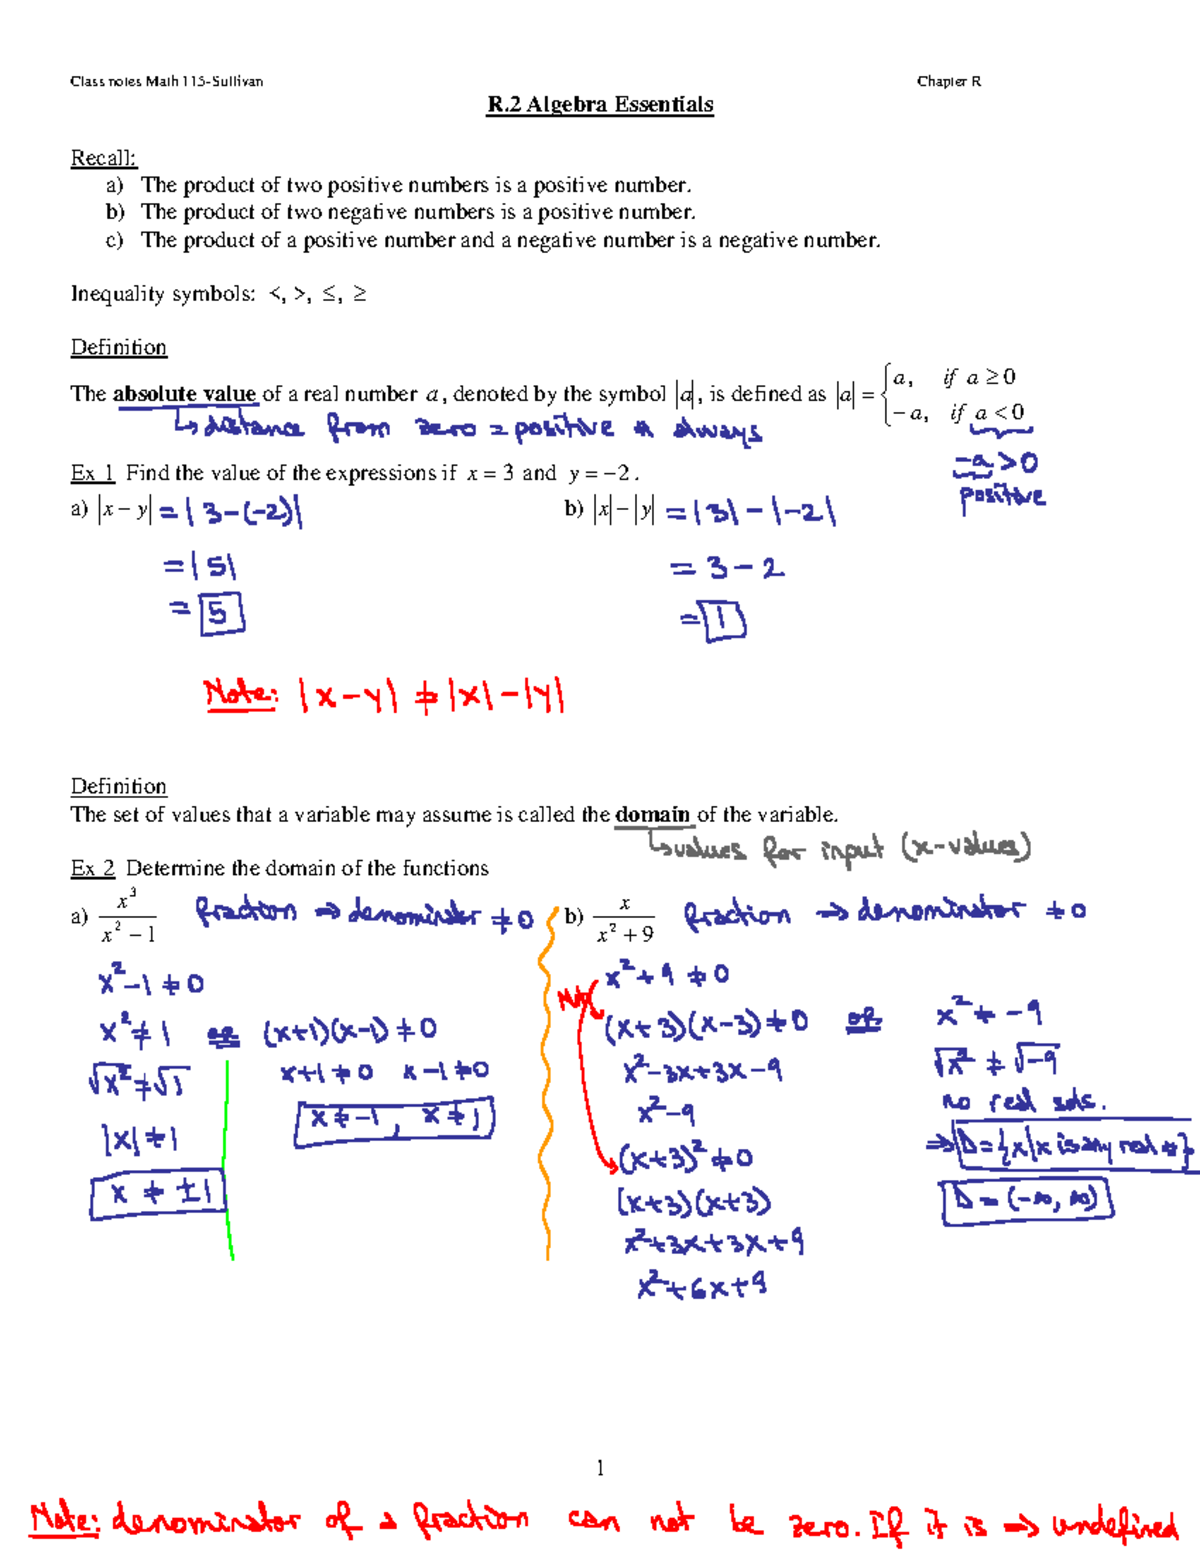 Class notes Math 115-Sullivan Chapter R
R.2 Algebra Essentials
Recall:
a) The product of two positive numbers is a positive number.
b) The product of two negative numbers is a positive number.
c) The product of a positive number and a negative number is a negative number.
Inequality symbols: <, >, ≤, ≥
Definition
The absolute value of a real number a, denoted by the symbol |a|, is defined as |a| = { a, if a ≥ 0
−a, if a < 0
↳ distance from zero = positive # always
-a > 0
positive
Ex 1 Find the value of the expressions if x = 3 and y = −2.
a) |x − y| = |3-(-2)|
= |5|
= 5
b) |x| − |y| = |3| - |-2|
= 3 - 2
= 1
Note: |x-y| ≠ |x| - |y|
Definition
The set of values that a variable may assume is called the domain of the variable.
↳ values for input (x-values)
Ex 2 Determine the domain of the functions
a) x³/(x² − 1) fraction ⇒ denominator ≠ 0
x²-1 ≠ 0
x² ≠ 1 or (x+1)(x-1) ≠ 0
√x² ≠ √1 x+1 ≠ 0 x-1 ≠ 0
|x| ≠ 1 x ≠ -1, x ≠ 1
x ≠ ±1
b) x/(x² + 9) fraction ⇒ denominator ≠ 0
x² + 9 ≠ 0
(x+3)(x-3) ≠ 0 or x² ≠ -9
x²-3x+3x-9 √x² ≠ √-9
x²-9 no real sols.
(x+3)² ≠ 0 ⇒ D = {x|x is any real #}
(x+3)(x+3) D = (-∞, ∞)
x²+3x+3x+9
x²+6x+9
1
Note: denominator of a fraction can not be zero. If it is ⇒ undefined